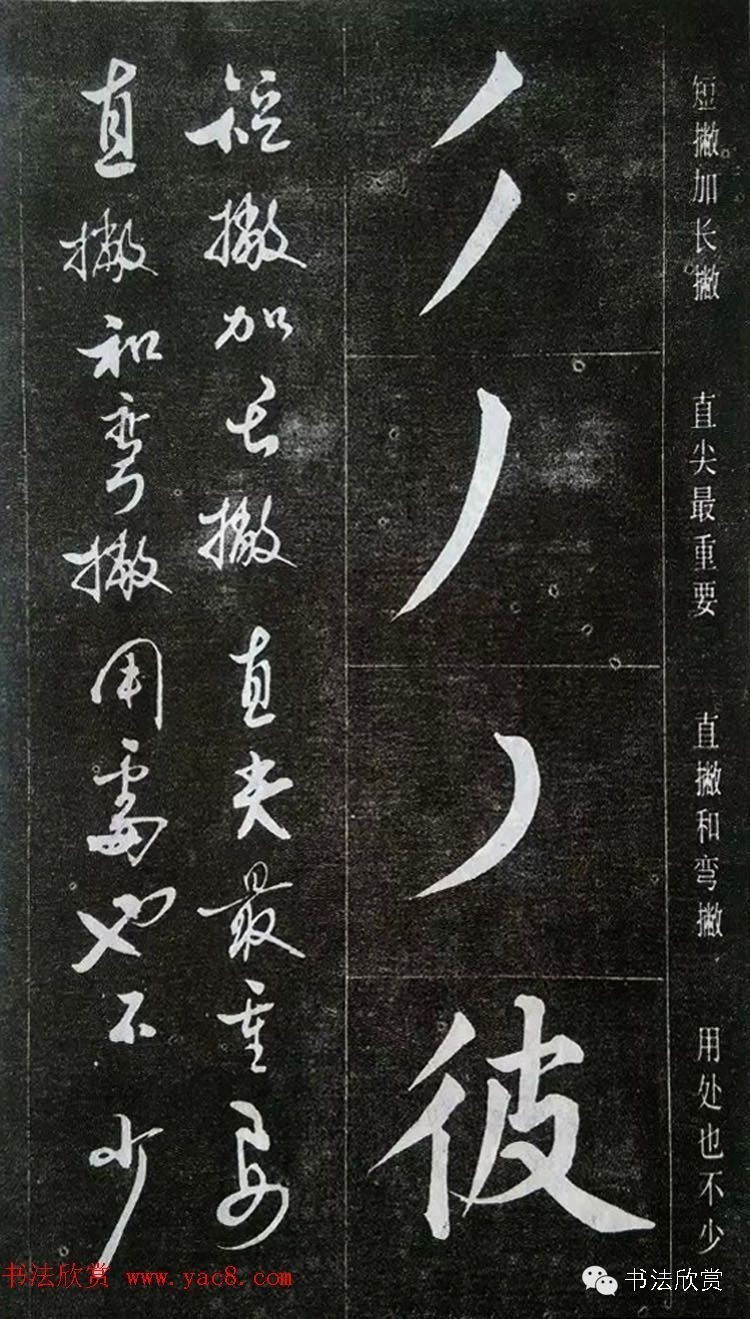 短撇加长撇 直尖最重要 直撇和弯撇 用处也不少
丿丿
丿
丿
彼
短撇加长撇 直尖最重要
直撇和弯撇用處也不少
书法欣赏 www.yac8.com
书法欣赏